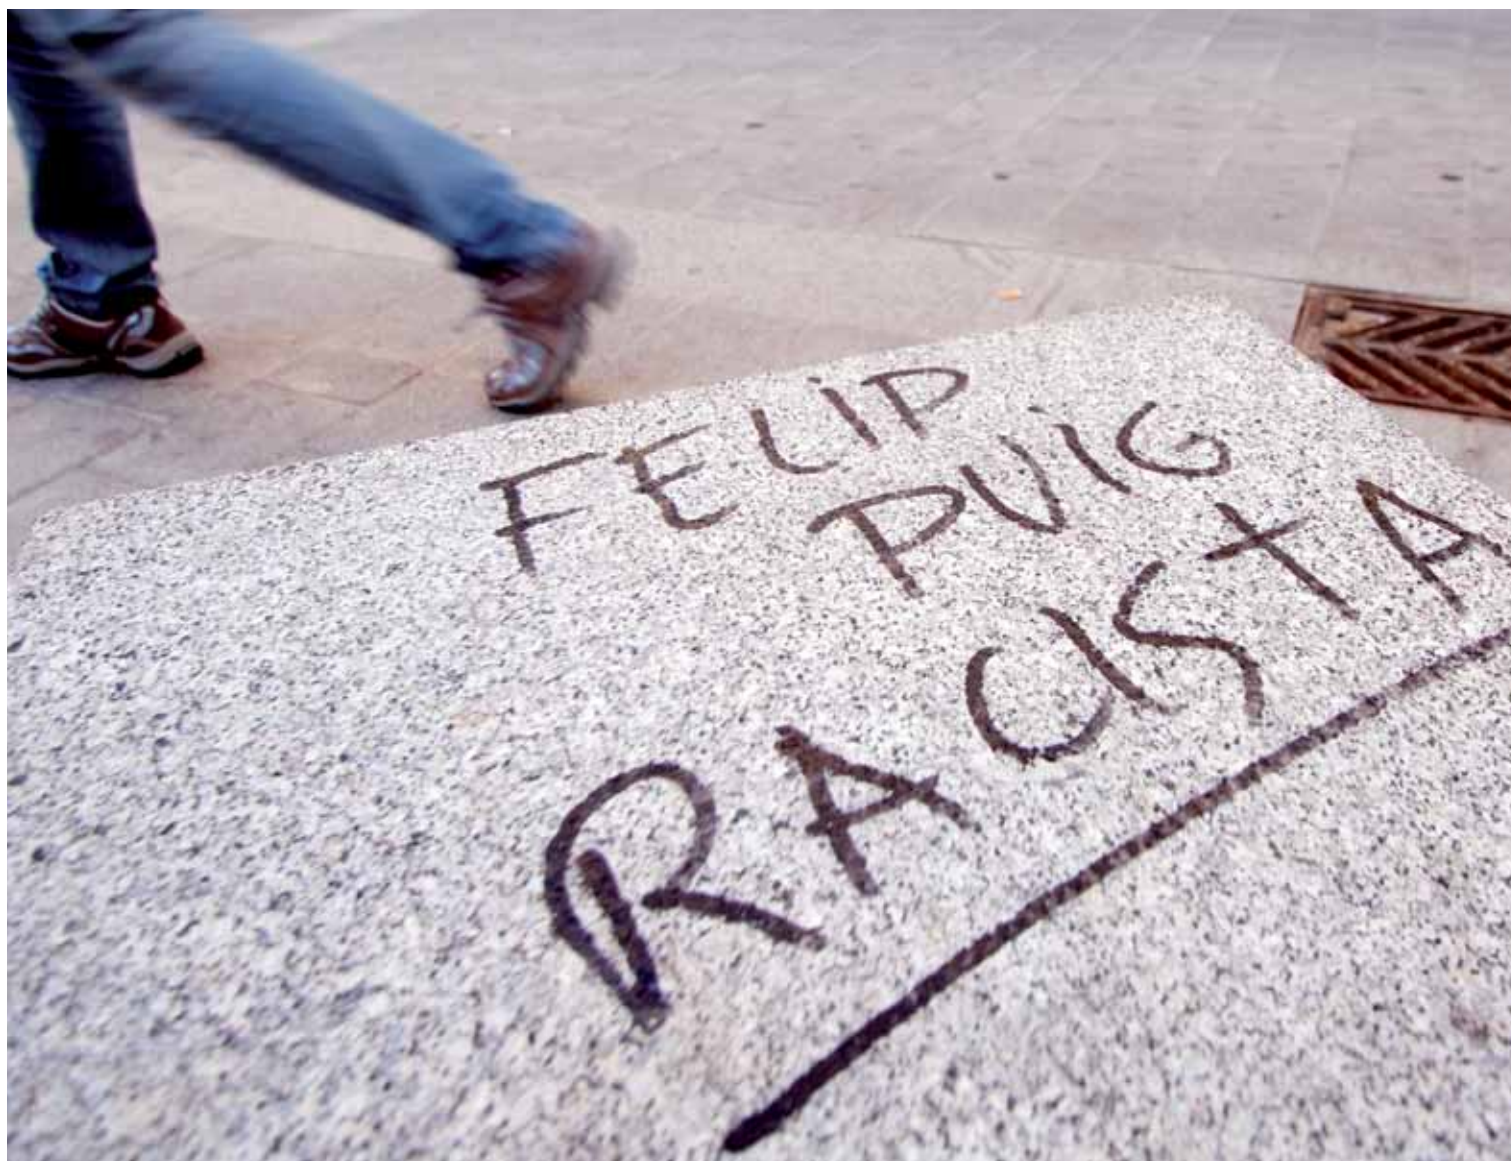 FELIP
PUIG
RACISTA